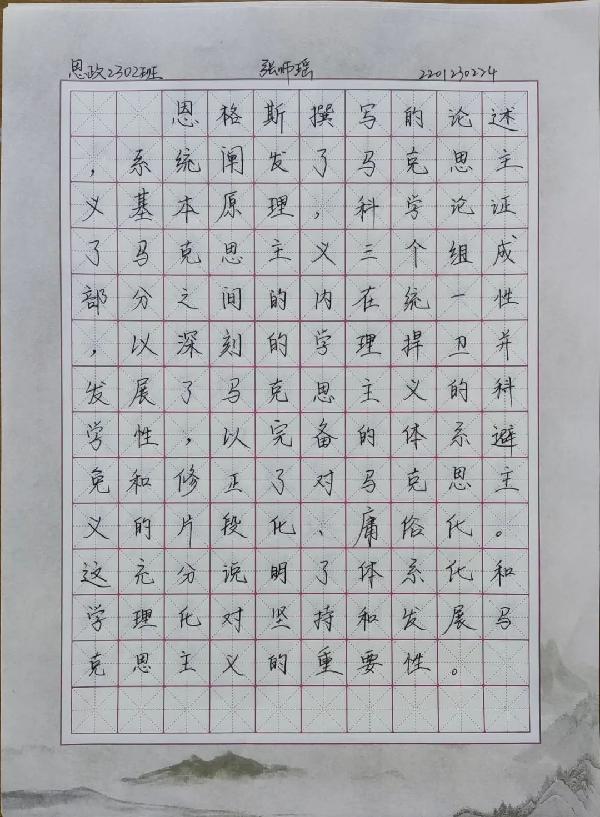 思政2302班 张师瑶 2201230224
恩格斯撰写的论述
，系统阐发了马克思主
义基本原理，科学论证
了马克思主义三个组成
部分之间的内在统一性
，以深刻的学理捍卫并
发展了马克思主义的科
学性，以完备的体系避
免和修正了对马克思主
义的片段化、庸俗化。
这充分说明了体系化和
学理化对坚持和发展马
克思主义的重要性。